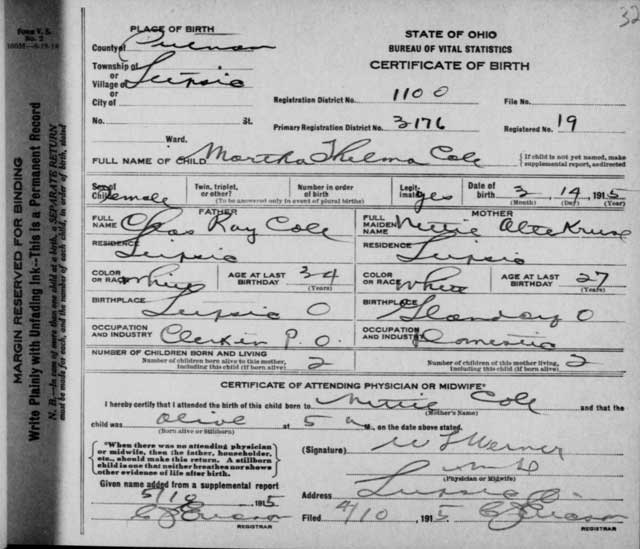 32
FORM V. S. No. 2
MARGIN RESERVED FOR BINDING
Write Plainly with Unfading Ink--This is a Permanent Record
N. B.—In case of more than one child at a birth, a SEPARATE RETURN must be made for each, and the number of each child, in order of birth, stated
PLACE OF BIRTH
STATE OF OHIO
BUREAU OF VITAL STATISTICS
CERTIFICATE OF BIRTH
County of Putnam
Township of or Village of Leipsic
or
City of
Registration District No. 1100 File No.
No. St.
Primary Registration District No. 3176 Registered No. 19
Ward.
FULL NAME OF CHILD Martha Thelma Cole
{If child is not yet named, make supplemental report, as directed
Sex of Child Female Twin, triplet, or other? Number in order of birth Legitimate? yes Date of birth 3 14 1915
(To be answered only in event of plural births) (Month) (Day) (Year)
FATHER
MOTHER
FULL NAME Chas Ray Cole
FULL MAIDEN NAME Nettie AlteKruse
RESIDENCE Leipsic
RESIDENCE Leipsic
COLOR OR RACE White AGE AT LAST BIRTHDAY 34 (Years)
COLOR OR RACE White AGE AT LAST BIRTHDAY 27 (Years)
BIRTHPLACE Leipsic O
BIRTHPLACE Glandorf O
OCCUPATION AND INDUSTRY Clerk in P. O.
OCCUPATION AND INDUSTRY Domestic
NUMBER OF CHILDREN BORN AND LIVING
Number of children born alive to this mother, including this child (if born alive) 2
Number of children of this mother living, including this child (if born alive) 2
CERTIFICATE OF ATTENDING PHYSICIAN OR MIDWIFE*
I hereby certify that I attended the birth of this child born to Nettie Cole and that the
(Mother's Name)
child was alive at 5 a M., on the date above stated.
(Born alive or Stillborn)
*When there was no attending physician or midwife, then the father, householder, etc., should make this return. A stillborn child is one that neither breathes nor shows other evidence of life after birth.
(Signature) W F Werner
M D
(Physician or Midwife)
Given name added from a supplemental report
5/10 1915
Address Leipsic O.
REGISTRAR
Filed 4/10 1915
REGISTRAR